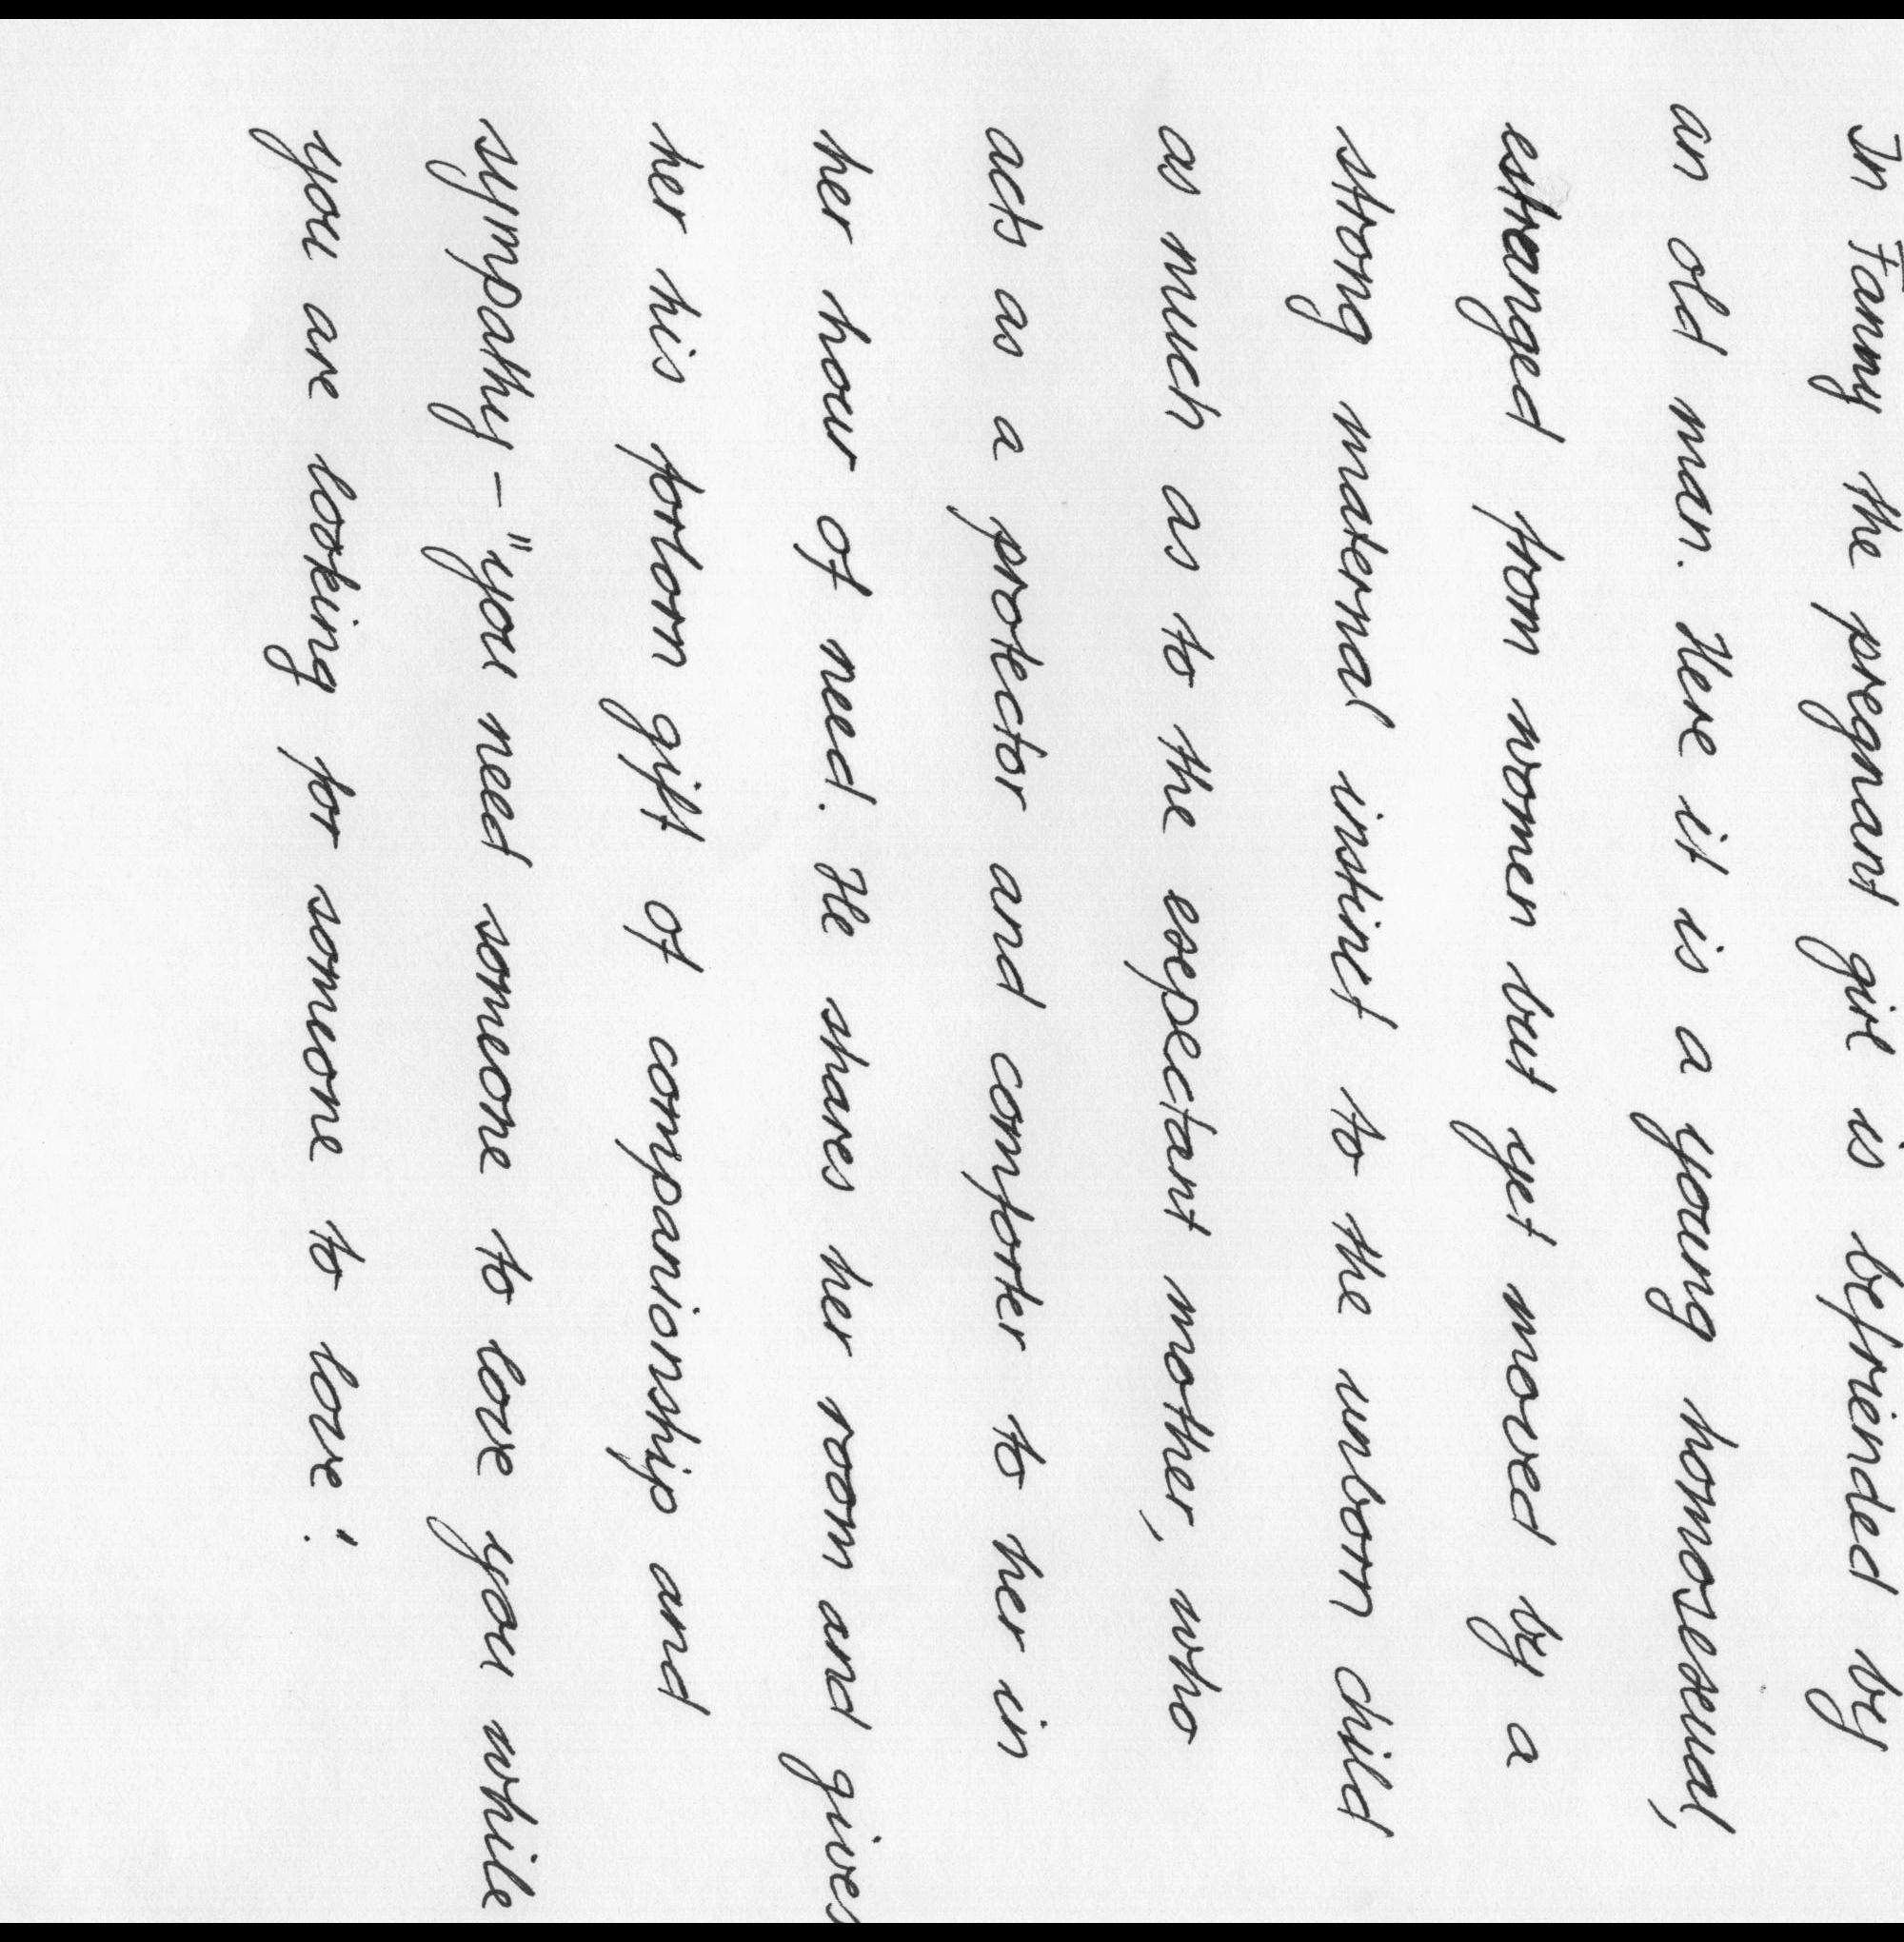 In Fanny the pregnant girl is befriended by
an old man. Here it is a young homosexual,
estranged from women but yet moved by a
strong maternal instinct to the unborn child
as much as to the expectant mother, who
acts as a protector and comforter to her in
her hour of need. He shares her room and gives
her his forlorn gift of companionship and
sympathy - "you need someone to love you while
you are looking for someone to love'.